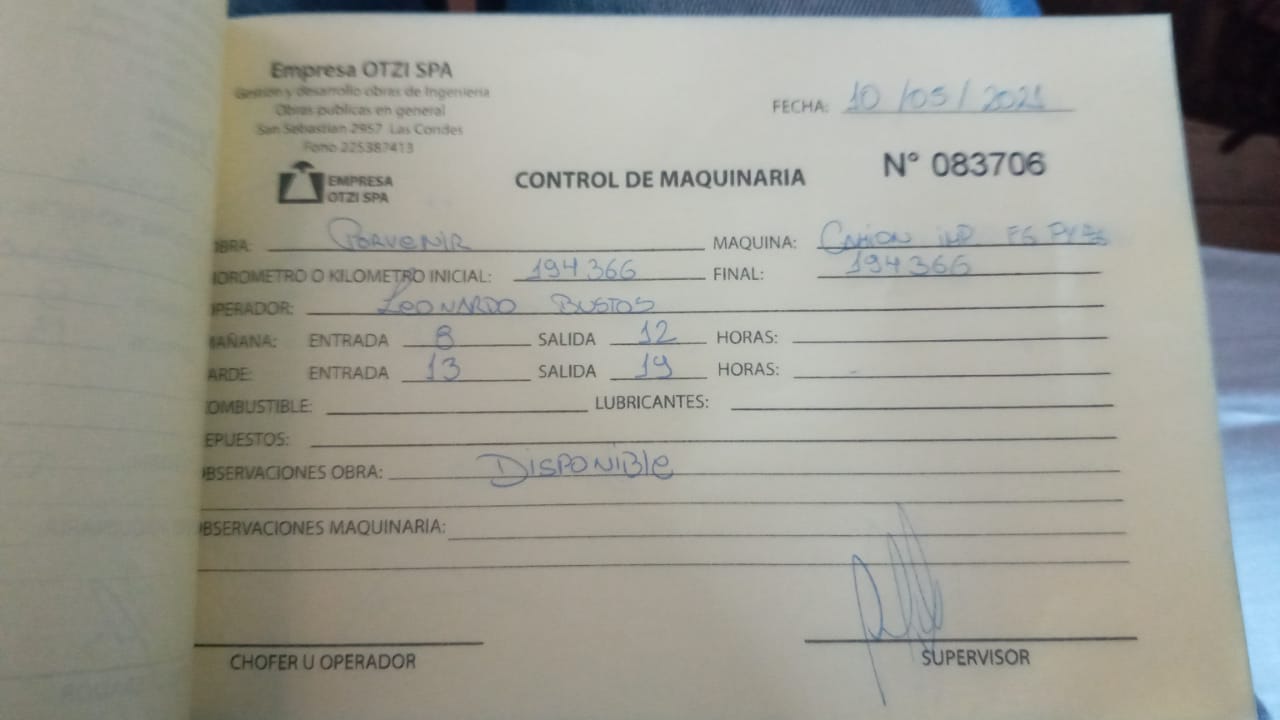 Empresa OTZI SPA
Gestion y desarrollo obras de Ingenieria
Obras publicas en general
San Sebastian 2957 Las Condes
Fono 225387413
EMPRESA
OTZI SPA
FECHA: 10/05/2021
CONTROL DE MAQUINARIA
N° 083706
OBRA: PORVENIR MAQUINA: CAMION
HOROMETRO O KILOMETRO INICIAL: 194366 FINAL: 194366
OPERADOR: LEONARDO BUSTOS
MAÑANA: ENTRADA 8 SALIDA 12 HORAS:
TARDE: ENTRADA 13 SALIDA 19 HORAS:
COMBUSTIBLE: LUBRICANTES:
REPUESTOS:
OBSERVACIONES OBRA: DISPONIBLE
OBSERVACIONES MAQUINARIA:
CHOFER U OPERADOR SUPERVISOR